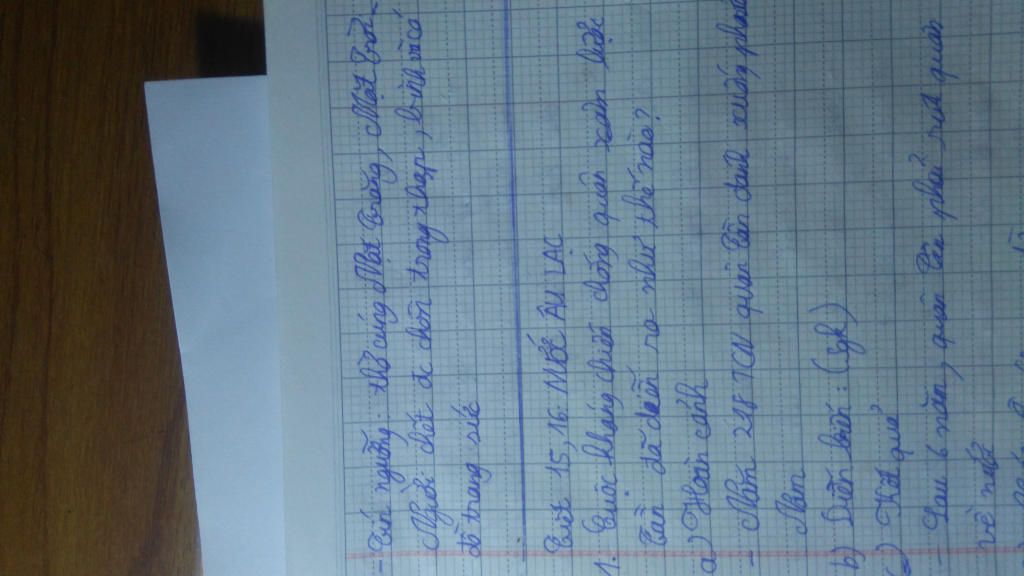 - Tín ngưỡng: thờ cúng Mặt Trăng, Mặt Trời -
Người chết đc chôn trong thạp, bình và có
đồ trang sức
Tiết 15, 16: NƯỚC ÂU LẠC
1. Cuộc kháng chiến chống quân xâm lược
Tần đã diễn ra như thế nào?
a) Hoàn cảnh
- Năm 218 TCN quân Tần đánh xuống phía
Nam
b) Diễn biến: (sgk)
c) Kết quả
- Sau 6 năm, quân Tần phải rút quân
về nước